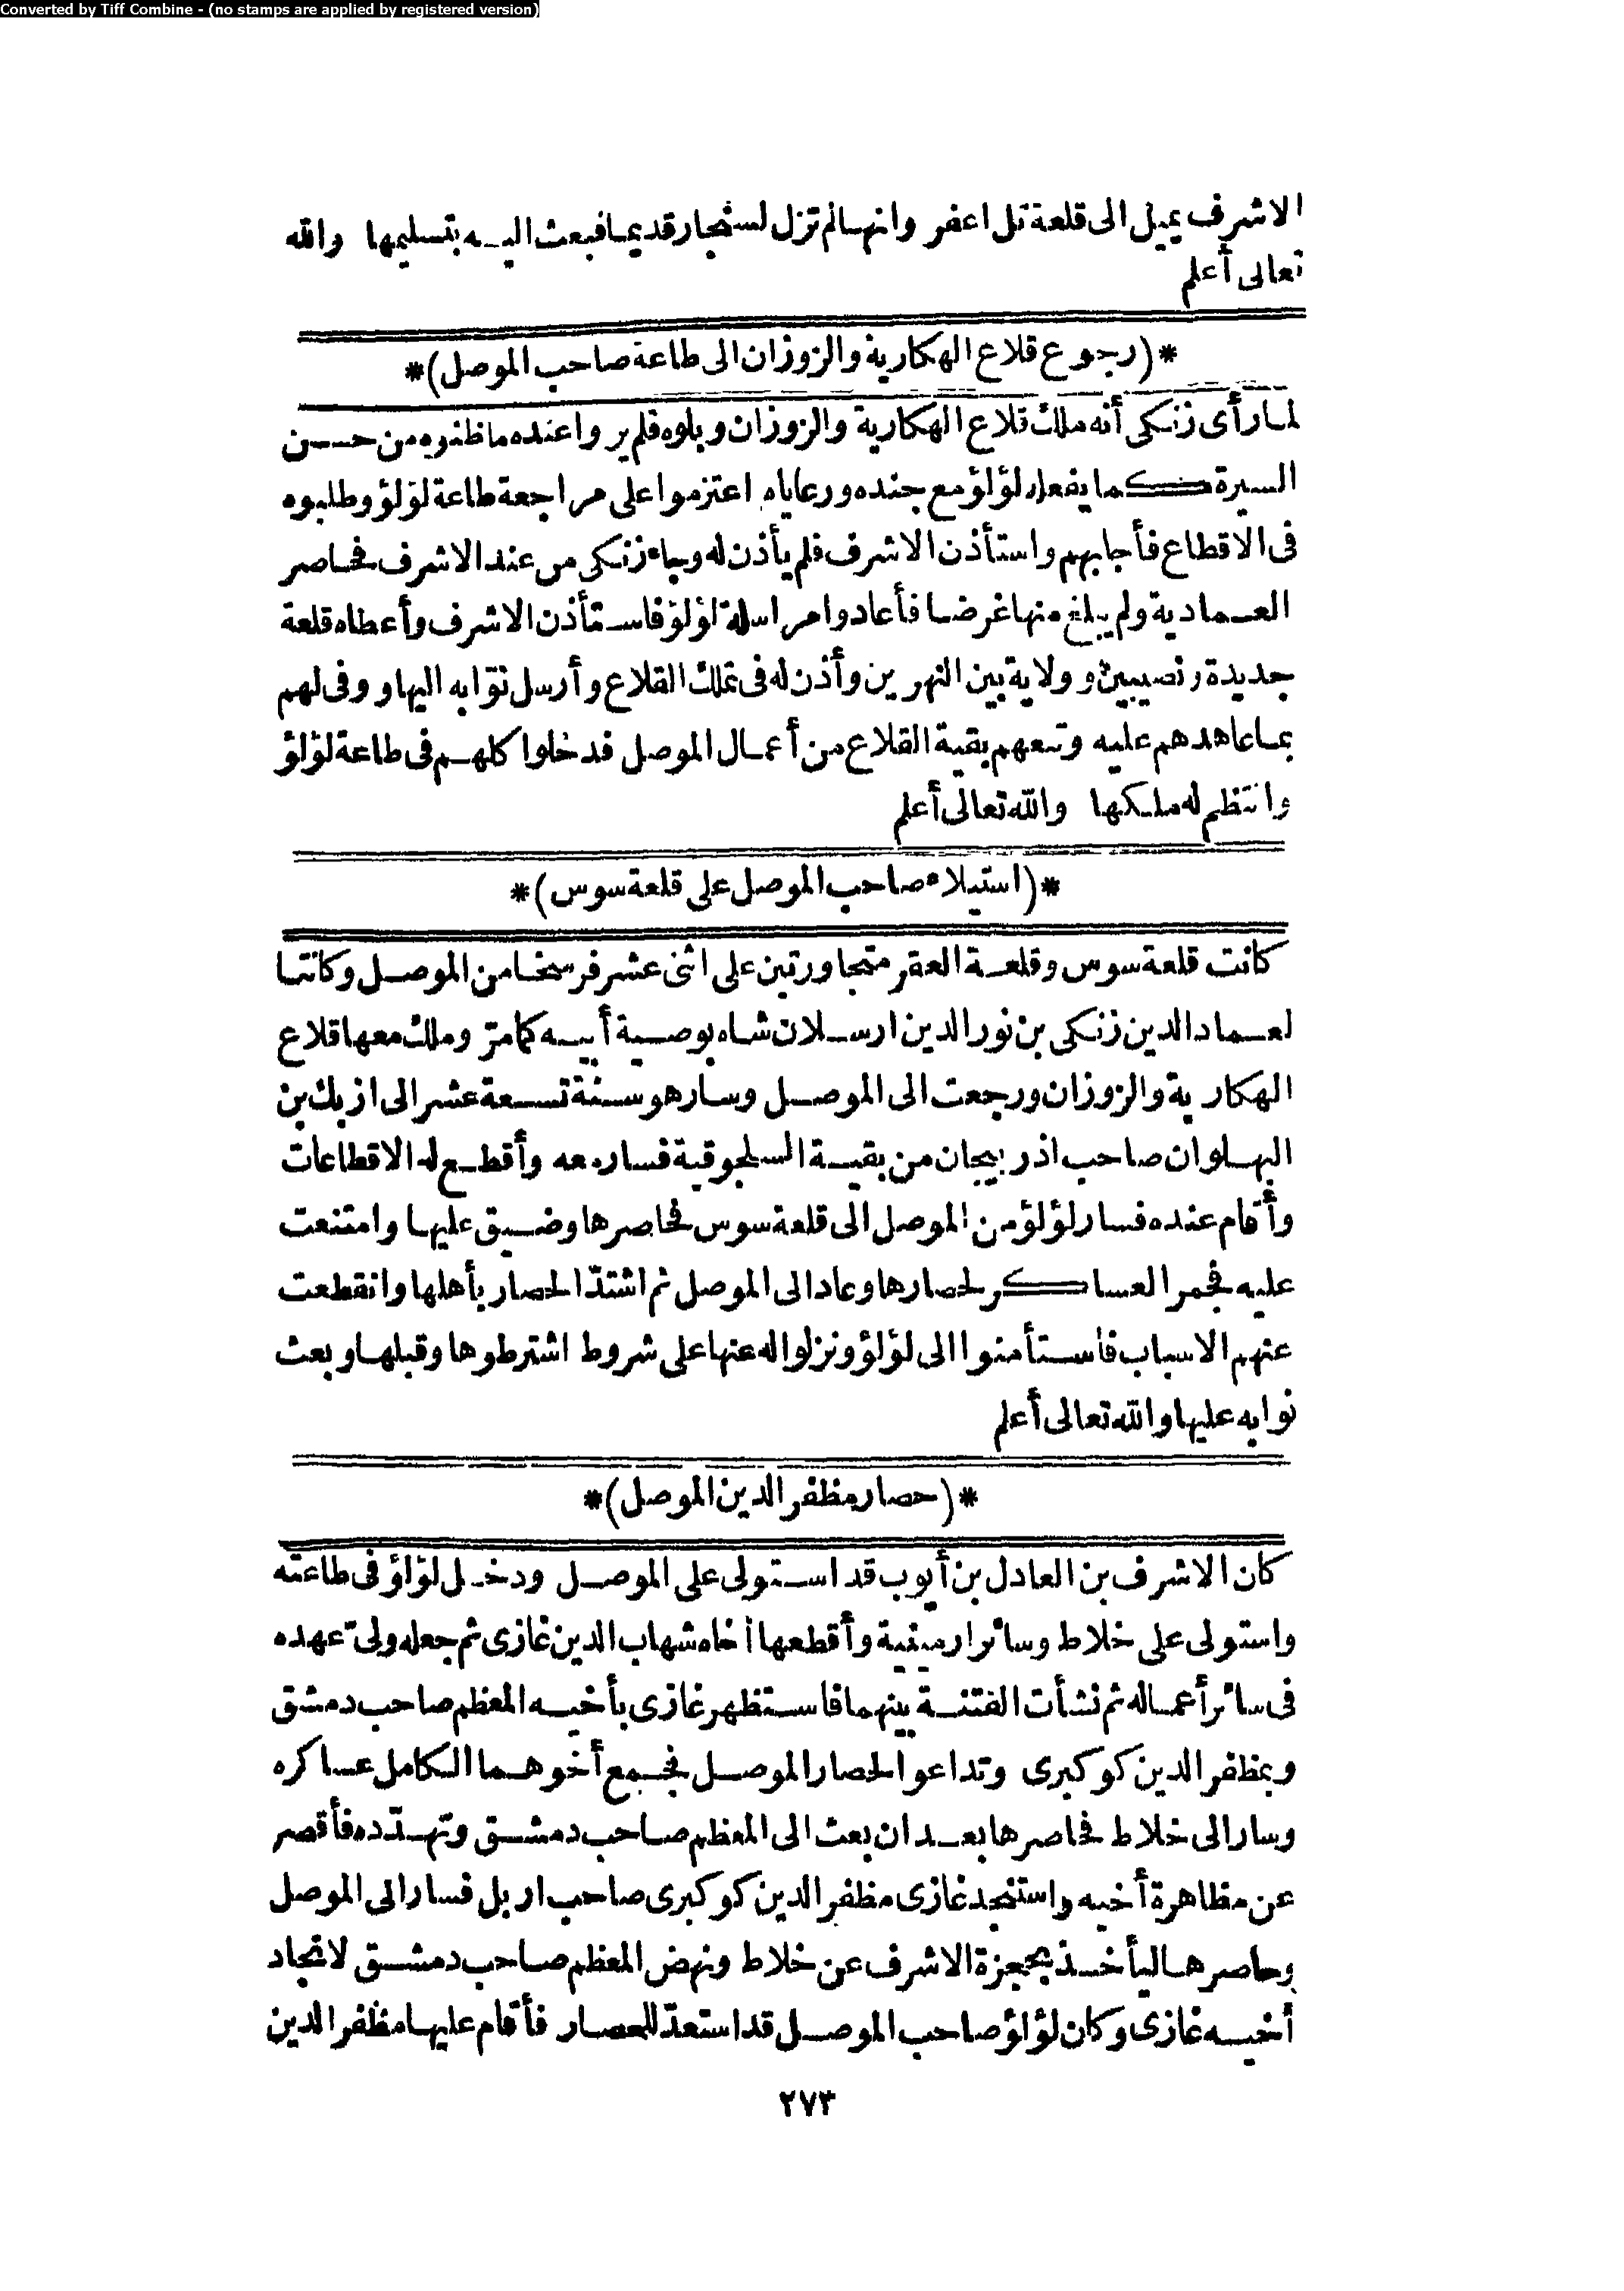 Converted by Tiff Combine - (no stamps are applied by registered version)
الاشرف يميل الى قلعة تل اعفر وانها لم تزل لسنجار قديما فبعث اليه بتسليمها والله
تعالى أعلم
*(رجوع قلاع الهكارية والزوزان الى طاعة صاحب الموصل)*
لما رأى زنكى أنه ملك قلاع الهكارية والزوزان وبلوه فلم يروا عنده ما ظنوه من حسن
السيرة كما يفعله لؤلؤ مع جنده ورعاياه اعتزموا على مراجعة طاعة لؤلؤ وطلبوه
فى الاقطاع فأجابهم واستأذن الاشرف فلم يأذن له وجاء زنكى من عند الاشرف فحاصر
العمادية ولم يبلغ منها غرضا فأعادوا مراسلة لؤلؤ فاستأذن الاشرف وأعطاه قلعة
جديدة ونصيبين وولاية بين النهرين وأذن له فى تملك القلاع وأرسل نوّابه اليها ووفى لهم
بما عاهدهم عليه وتبعهم بقية القلاع من أعمال الموصل فدخلوا كلهم فى طاعة لؤلؤ
وانتظم له ملكها والله تعالى أعلم
*(استيلاء صاحب الموصل على قلعة سوس)*
كانت قلعة سوس وقلعة العقر متجاورتين على اثنى عشر فرسخا من الموصل وكانتا
لعماد الدين زنكى بن نور الدين ارسلان شاه بوصية أبيه كما مرّ وملك معها قلاع
الهكارية والزوزان ورجعت الى الموصل وسار هو سنة تسعة عشر الى ازبك بن
البهلوان صاحب اذربيجان من بقية السلجوقية فسار معه وأقطع له الاقطاعات
وأقام عنده فسار لؤلؤ من الموصل الى قلعة سوس فحاصرها وضيق عليها وامتنعت
عليه فجمر العساكر لحصارها وعاد الى الموصل ثم اشتدّ الحصار بأهلها وانقطعت
عنهم الاسباب فاستأمنوا الى لؤلؤ ونزلوا له عنها على شروط اشترطوها وقبلها وبعث
نوابه عليها والله تعالى أعلم
*(حصار مظفر الدين الموصل)*
كان الاشرف بن العادل بن أيوب قد استولى على الموصل ودخل لؤلؤ فى طاعته
واستولى على خلاط وسائر ارمينية وأقطعها أخاه شهاب الدين غازى ثم جعله ولىّ عهده
فى سائر أعماله ثم نشأت الفتنة بينهما فاستظهر غازى بأخيه المعظم صاحب دمشق
وبمظفر الدين كوكبرى وتداعوا لحصار الموصل فجمع أخوهما الكامل عساكره
وسار الى خلاط فحاصرها بعد ان بعث الى المعظم صاحب دمشق وتهدّده فأقصر
عن مظاهرة أخيه واستنجد غازى مظفر الدين كوكبرى صاحب اربل فسار الى الموصل
وحاصرها ليأخذ بحجزة الاشرف عن خلاط ونهض المعظم صاحب دمشق لانجاد
أخيه غازى وكان لؤلؤ صاحب الموصل قد استعدّ للحصار فأقام عليها مظفر الدين
٢٧٣